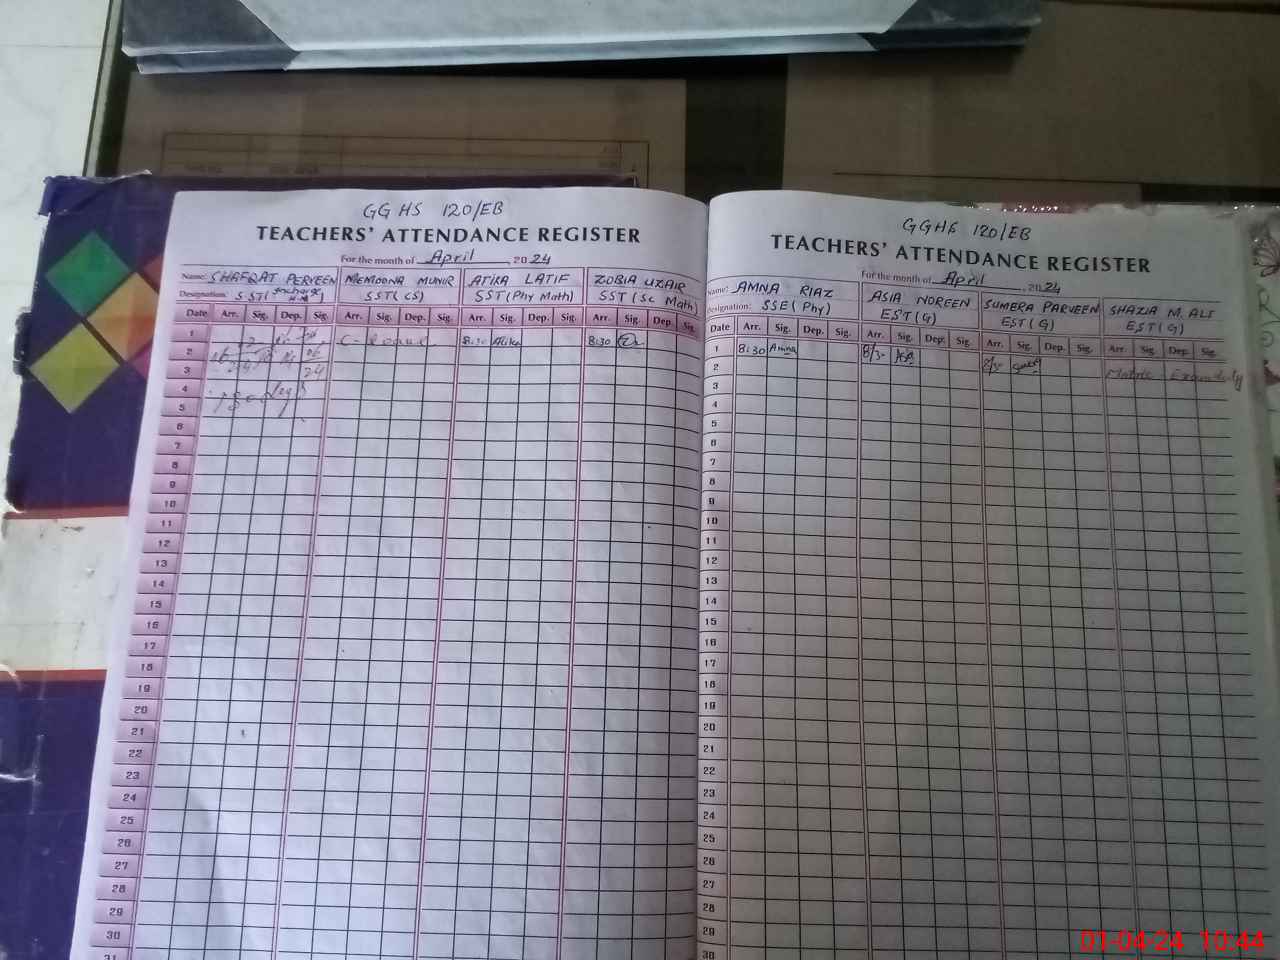 GGHS 120/EB
TEACHERS' ATTENDANCE REGISTER
For the month of April, 2024
Name: SHAFQAT PERVEEN MEMOONA MUNIR ATIKA LATIF ZOBIA UZAIR
Designation: SST( SST(CS) SST(Phy Math) SST(Sc Math)
Date Arr. Sig. Dep. Sig. Arr. Sig. Dep. Sig. Arr. Sig. Dep. Sig. Arr. Sig. Dep. Sig.
1 C-leave 8:30 Atika 8:30
2
3
4
5
6
7
8
9
10
11
12
13
14
15
16
17
18
19
20
21
22
23
24
25
26
27
28
29
30
31
GGHS 120/EB
TEACHERS' ATTENDANCE REGISTER
For the month of April, 2024
Name: AMNA RIAZ ASIA NOREEN SUMERA PARVEEN SHAZIA M. ALI
Designation: SSE(Phy) EST(G) EST(G) EST(G)
Date Arr. Sig. Dep. Sig. Arr. Sig. Dep. Sig. Arr. Sig. Dep. Sig. Arr. Sig. Dep. Sig.
1 8:30 Amna 8/30 Matric Exam duty
2
3
4
5
6
7
8
9
10
11
12
13
14
15
16
17
18
19
20
21
22
23
24
25
26
27
28
29
30
01-04-24 10:44